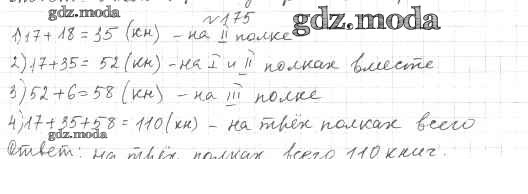 gdz.moda
№175
gdz.moda
1) 17 + 18 = 35 (кн) - на II полке
2) 17+35 = 52 (кн) - на I и II полках вместе
3) 52+6=58 (кн) - на III полке
4) 17+35+58 = 110 (кн) - на трёх полках всего
gdz.moda
Ответ: на трёх полках всего 110 книг.